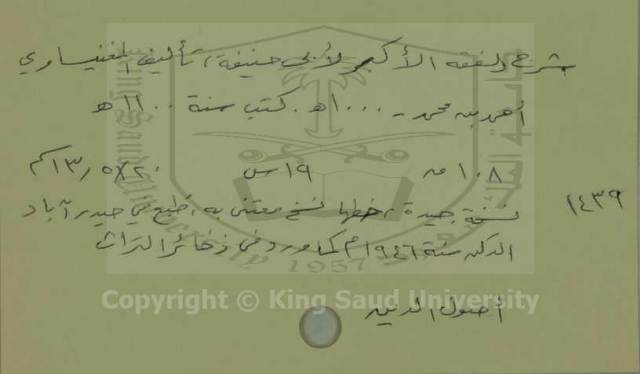 شرح الفقه الأكبر لأبي حنيفة، تأليف المغنيساوي
أحمد بن محمد - ١٠٠٠هـ. كتب سنة ١١٠٠ هـ
١٠٨ ق ١٩ س ٢٠×١٣٫٥ سم
١٤٣٩
نسخة جيدة، خطها نسخ معتنى به، طبع في حيدر آباد
الدكن سنة ١٩٤٦م كما ورد في ذخائر التراث
أصول الدين
1957
Copyright © King Saud University